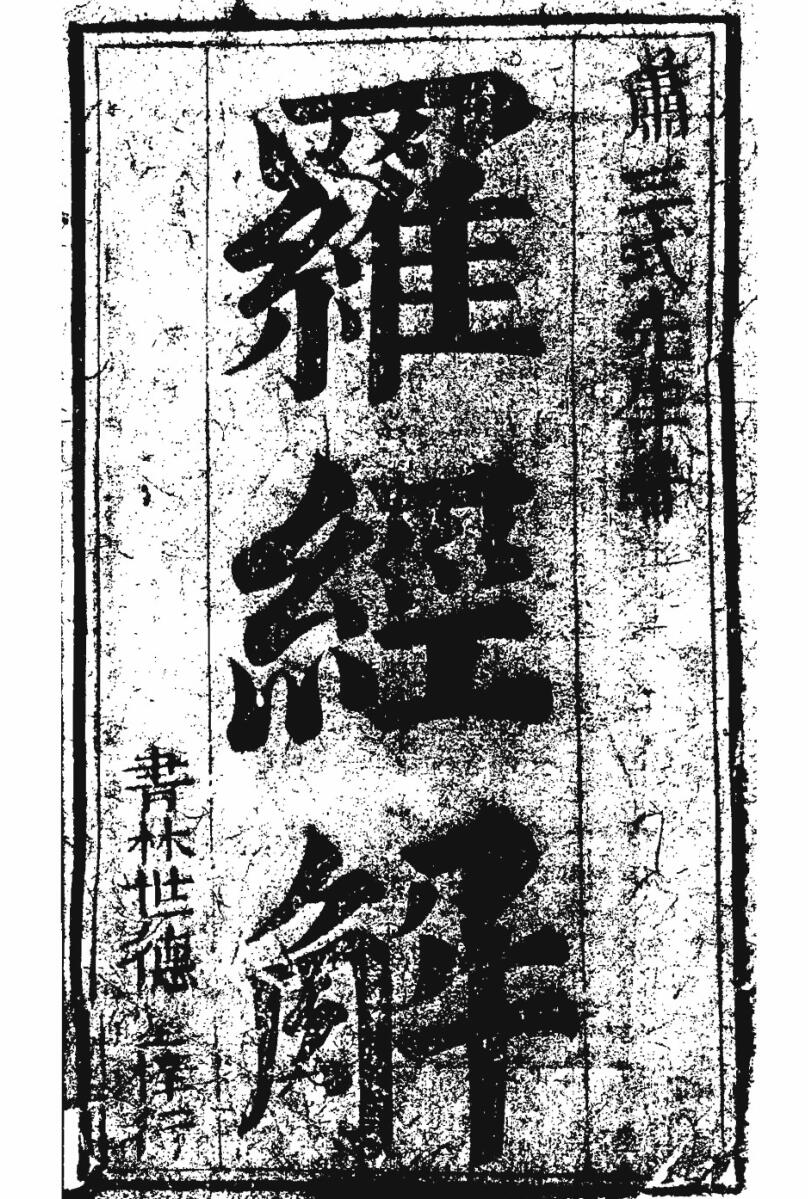 肅三式先生
羅經解
書林世德堂梓行